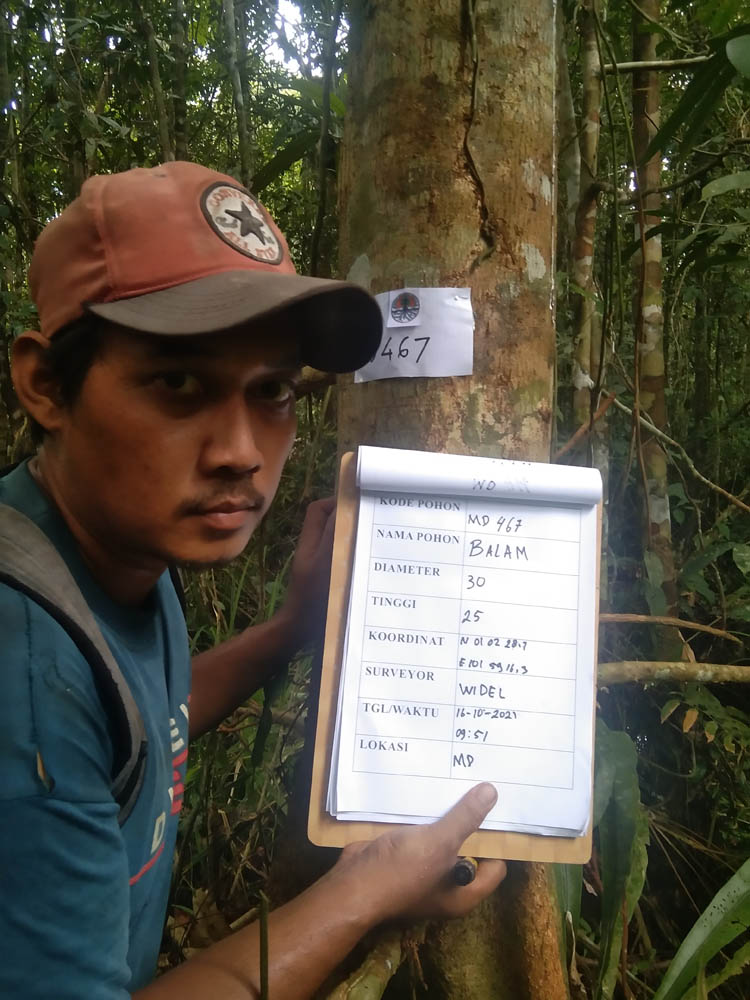 CONVERSE
ALL STAR
467
KODE POHON MD 467
NAMA POHON BALAM
DIAMETER 30
TINGGI 25
KOORDINAT N 01 02 28.7
E 101 59 16.3
SURVEYOR WIDEL
TGL/WAKTU 16-10-2021
09:51
LOKASI MD